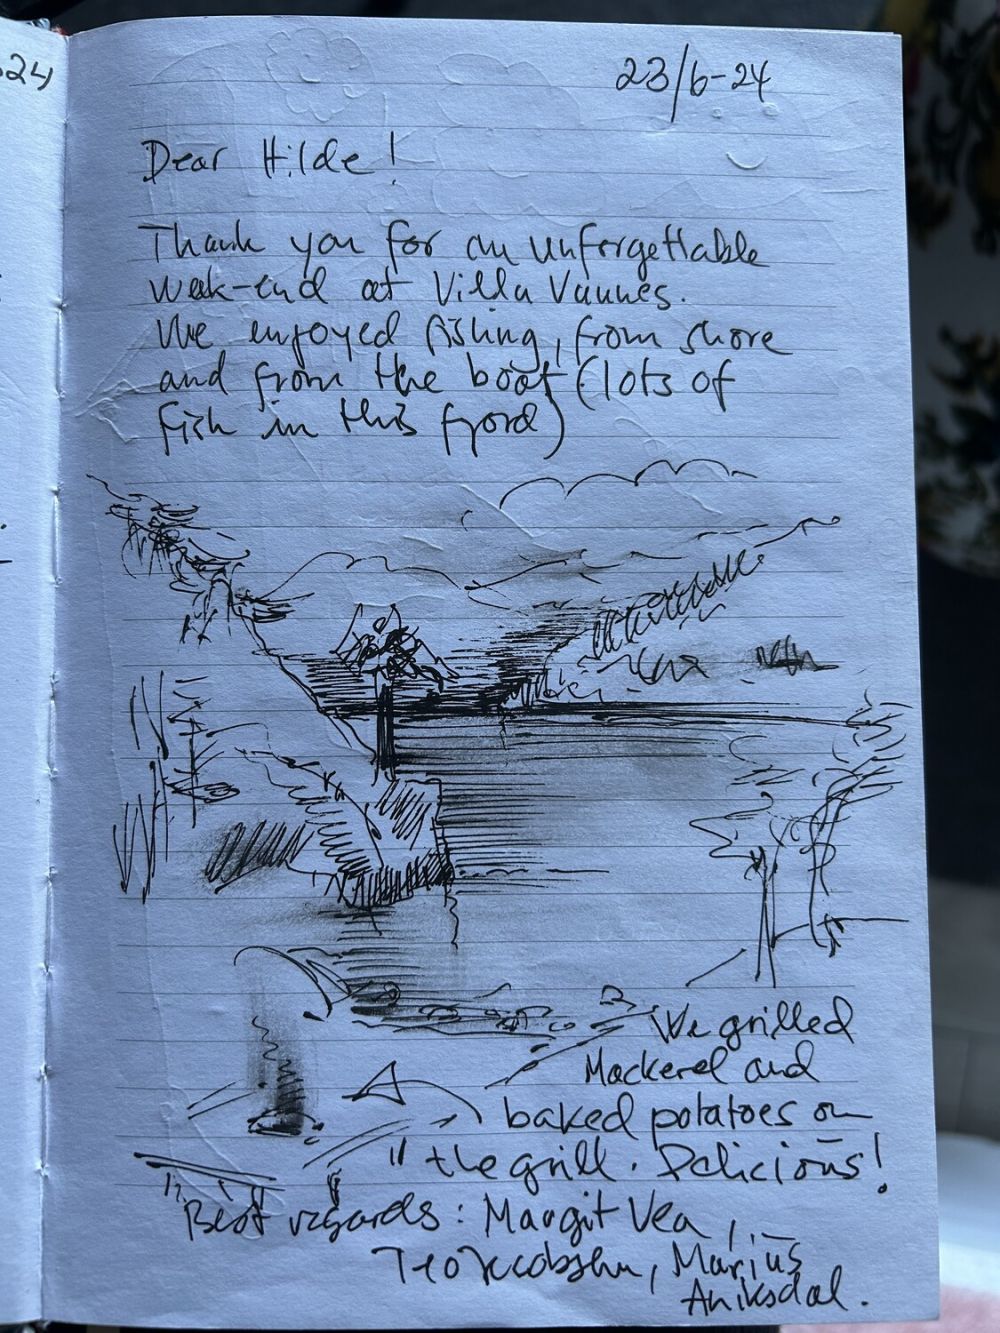 24
23/6-24
Dear Hilde!
Thank you for an unforgettable
week-end at Villa Vannes.
We enjoyed fishing, from shore
and from the boat (lots of
fish in this fjord)
We grilled
Mackerel and
baked potatoes on
the grill. Delicious!
Best regards: Margit Vea,
Teo Jacobsen, Marius
Aniksdal.